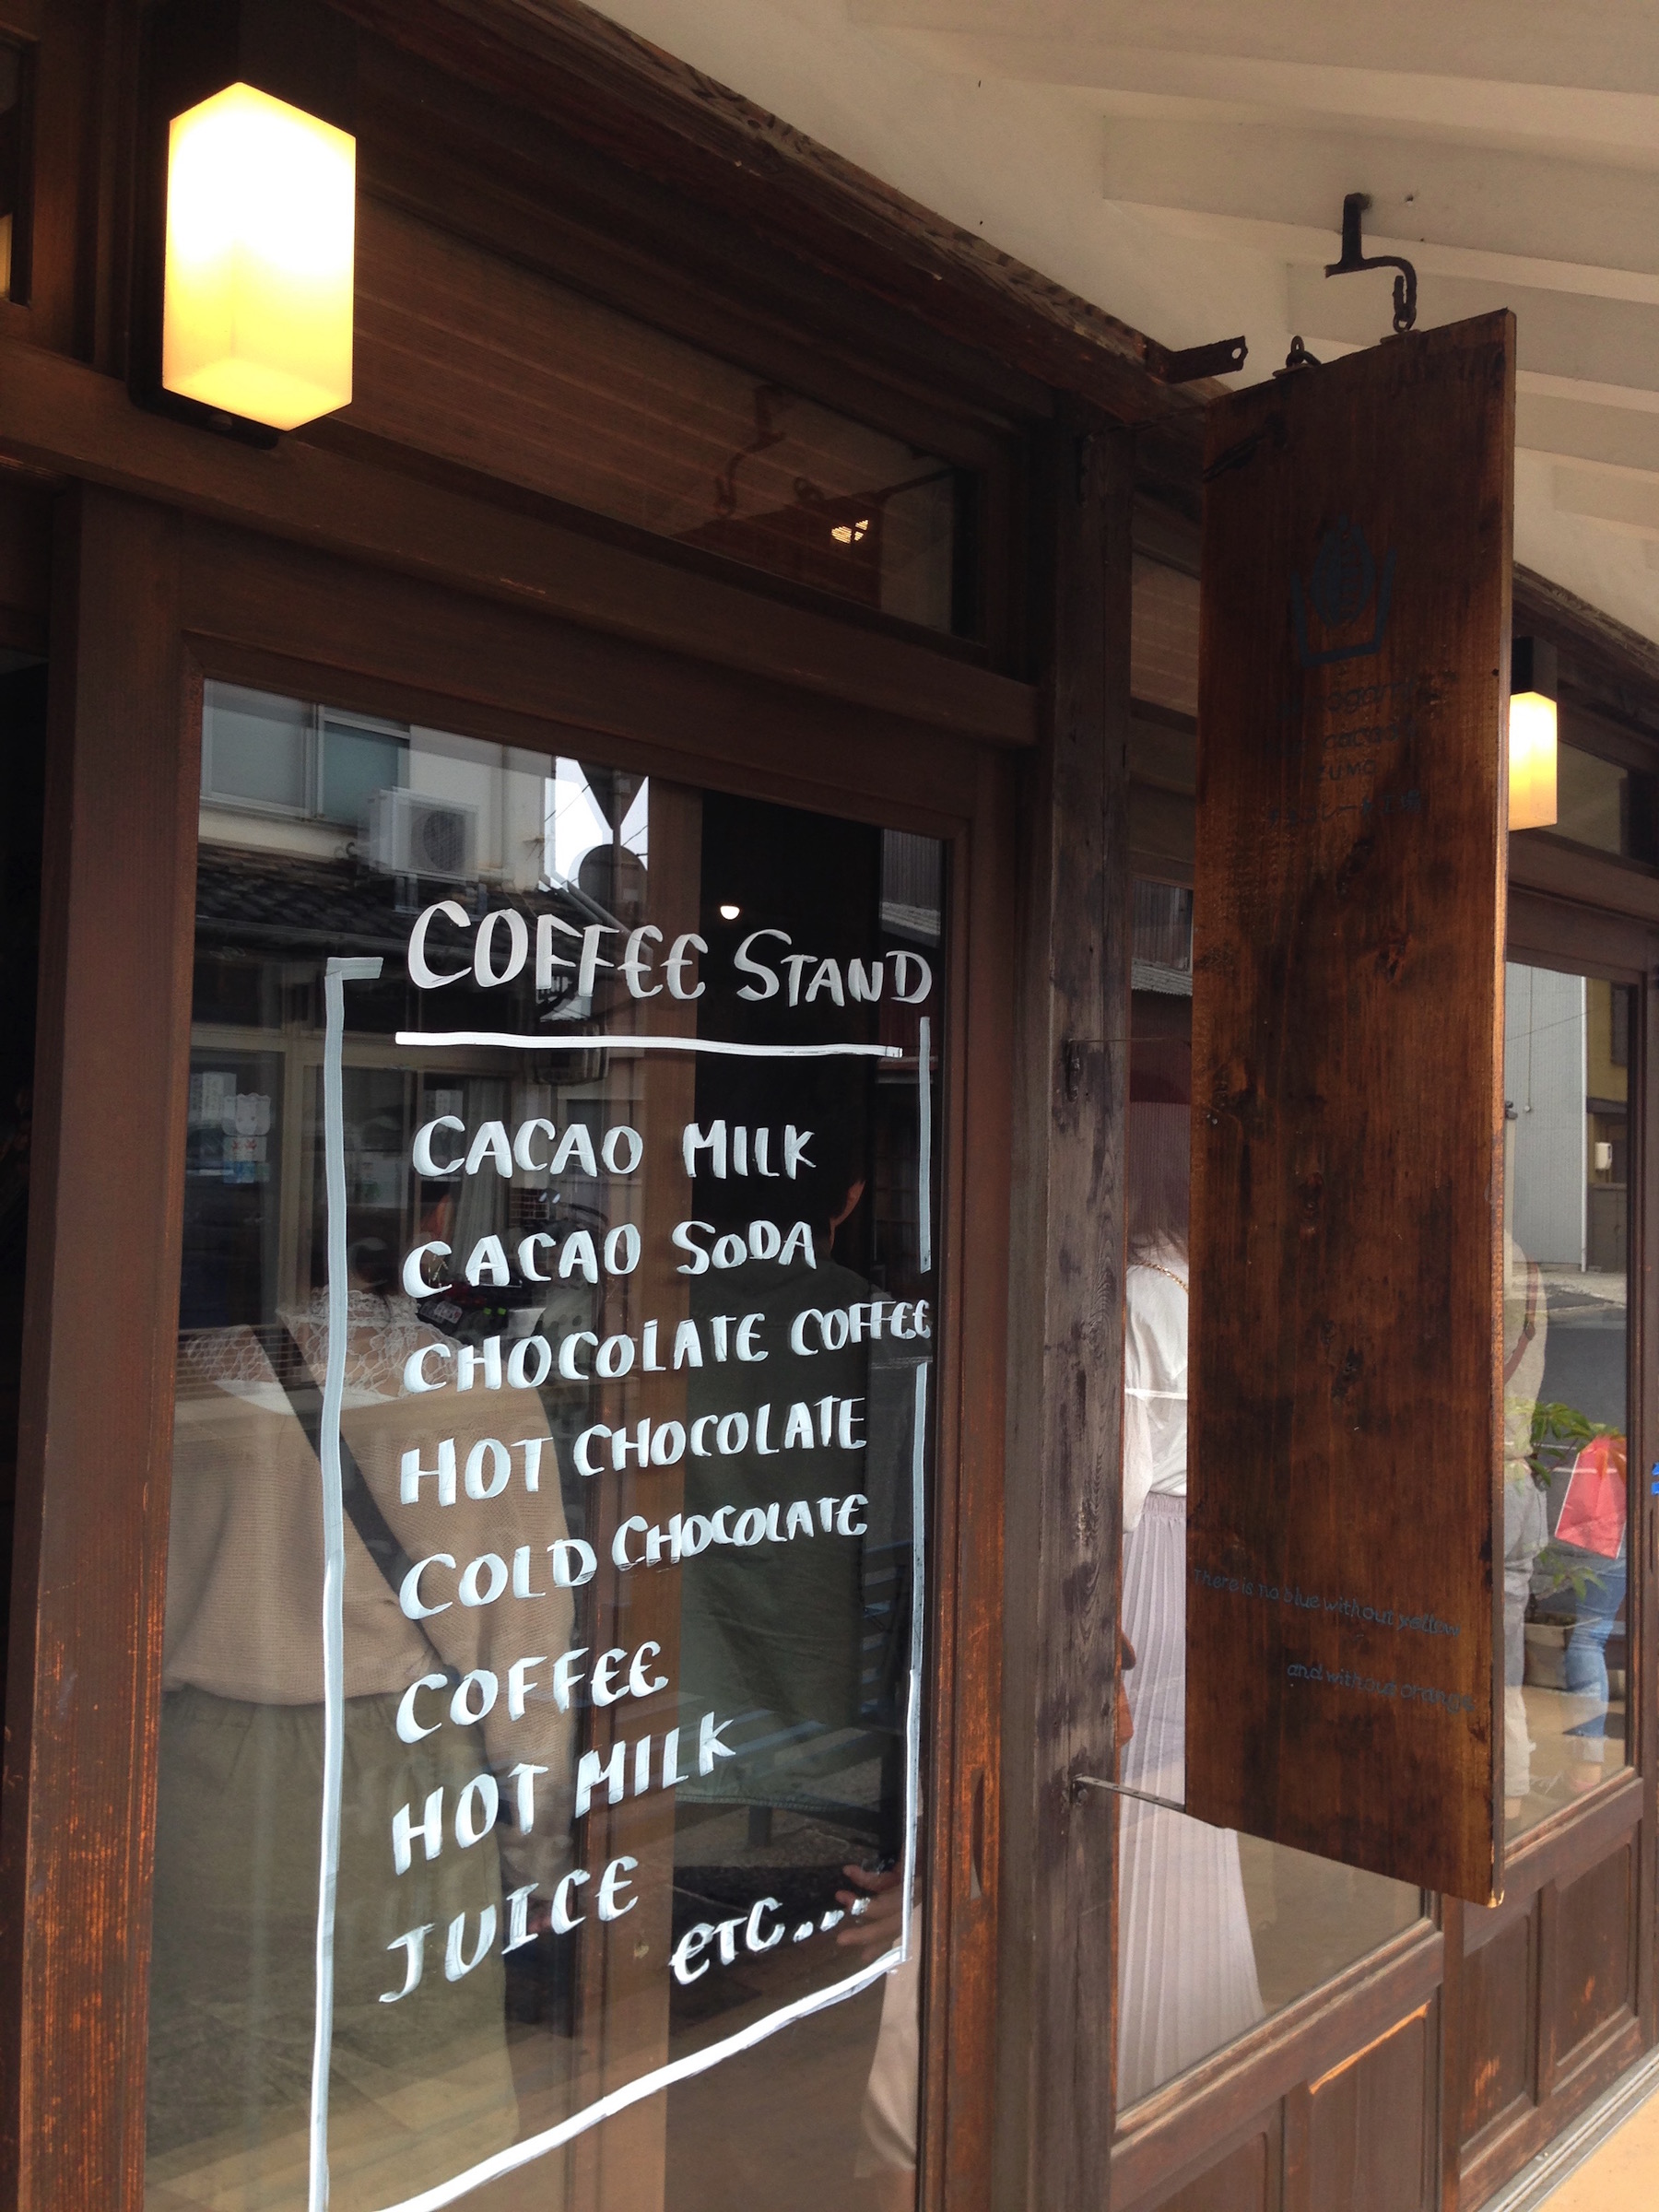 COFFEE STAND
CACAO MILK
CACAO SODA
CHOCOLATE COFFEE
HOT CHOCOLATE
COLD CHOCOLATE
COFFEE
HOT MILK
JUICE
etc...
There is no blue without yellow
and without orange